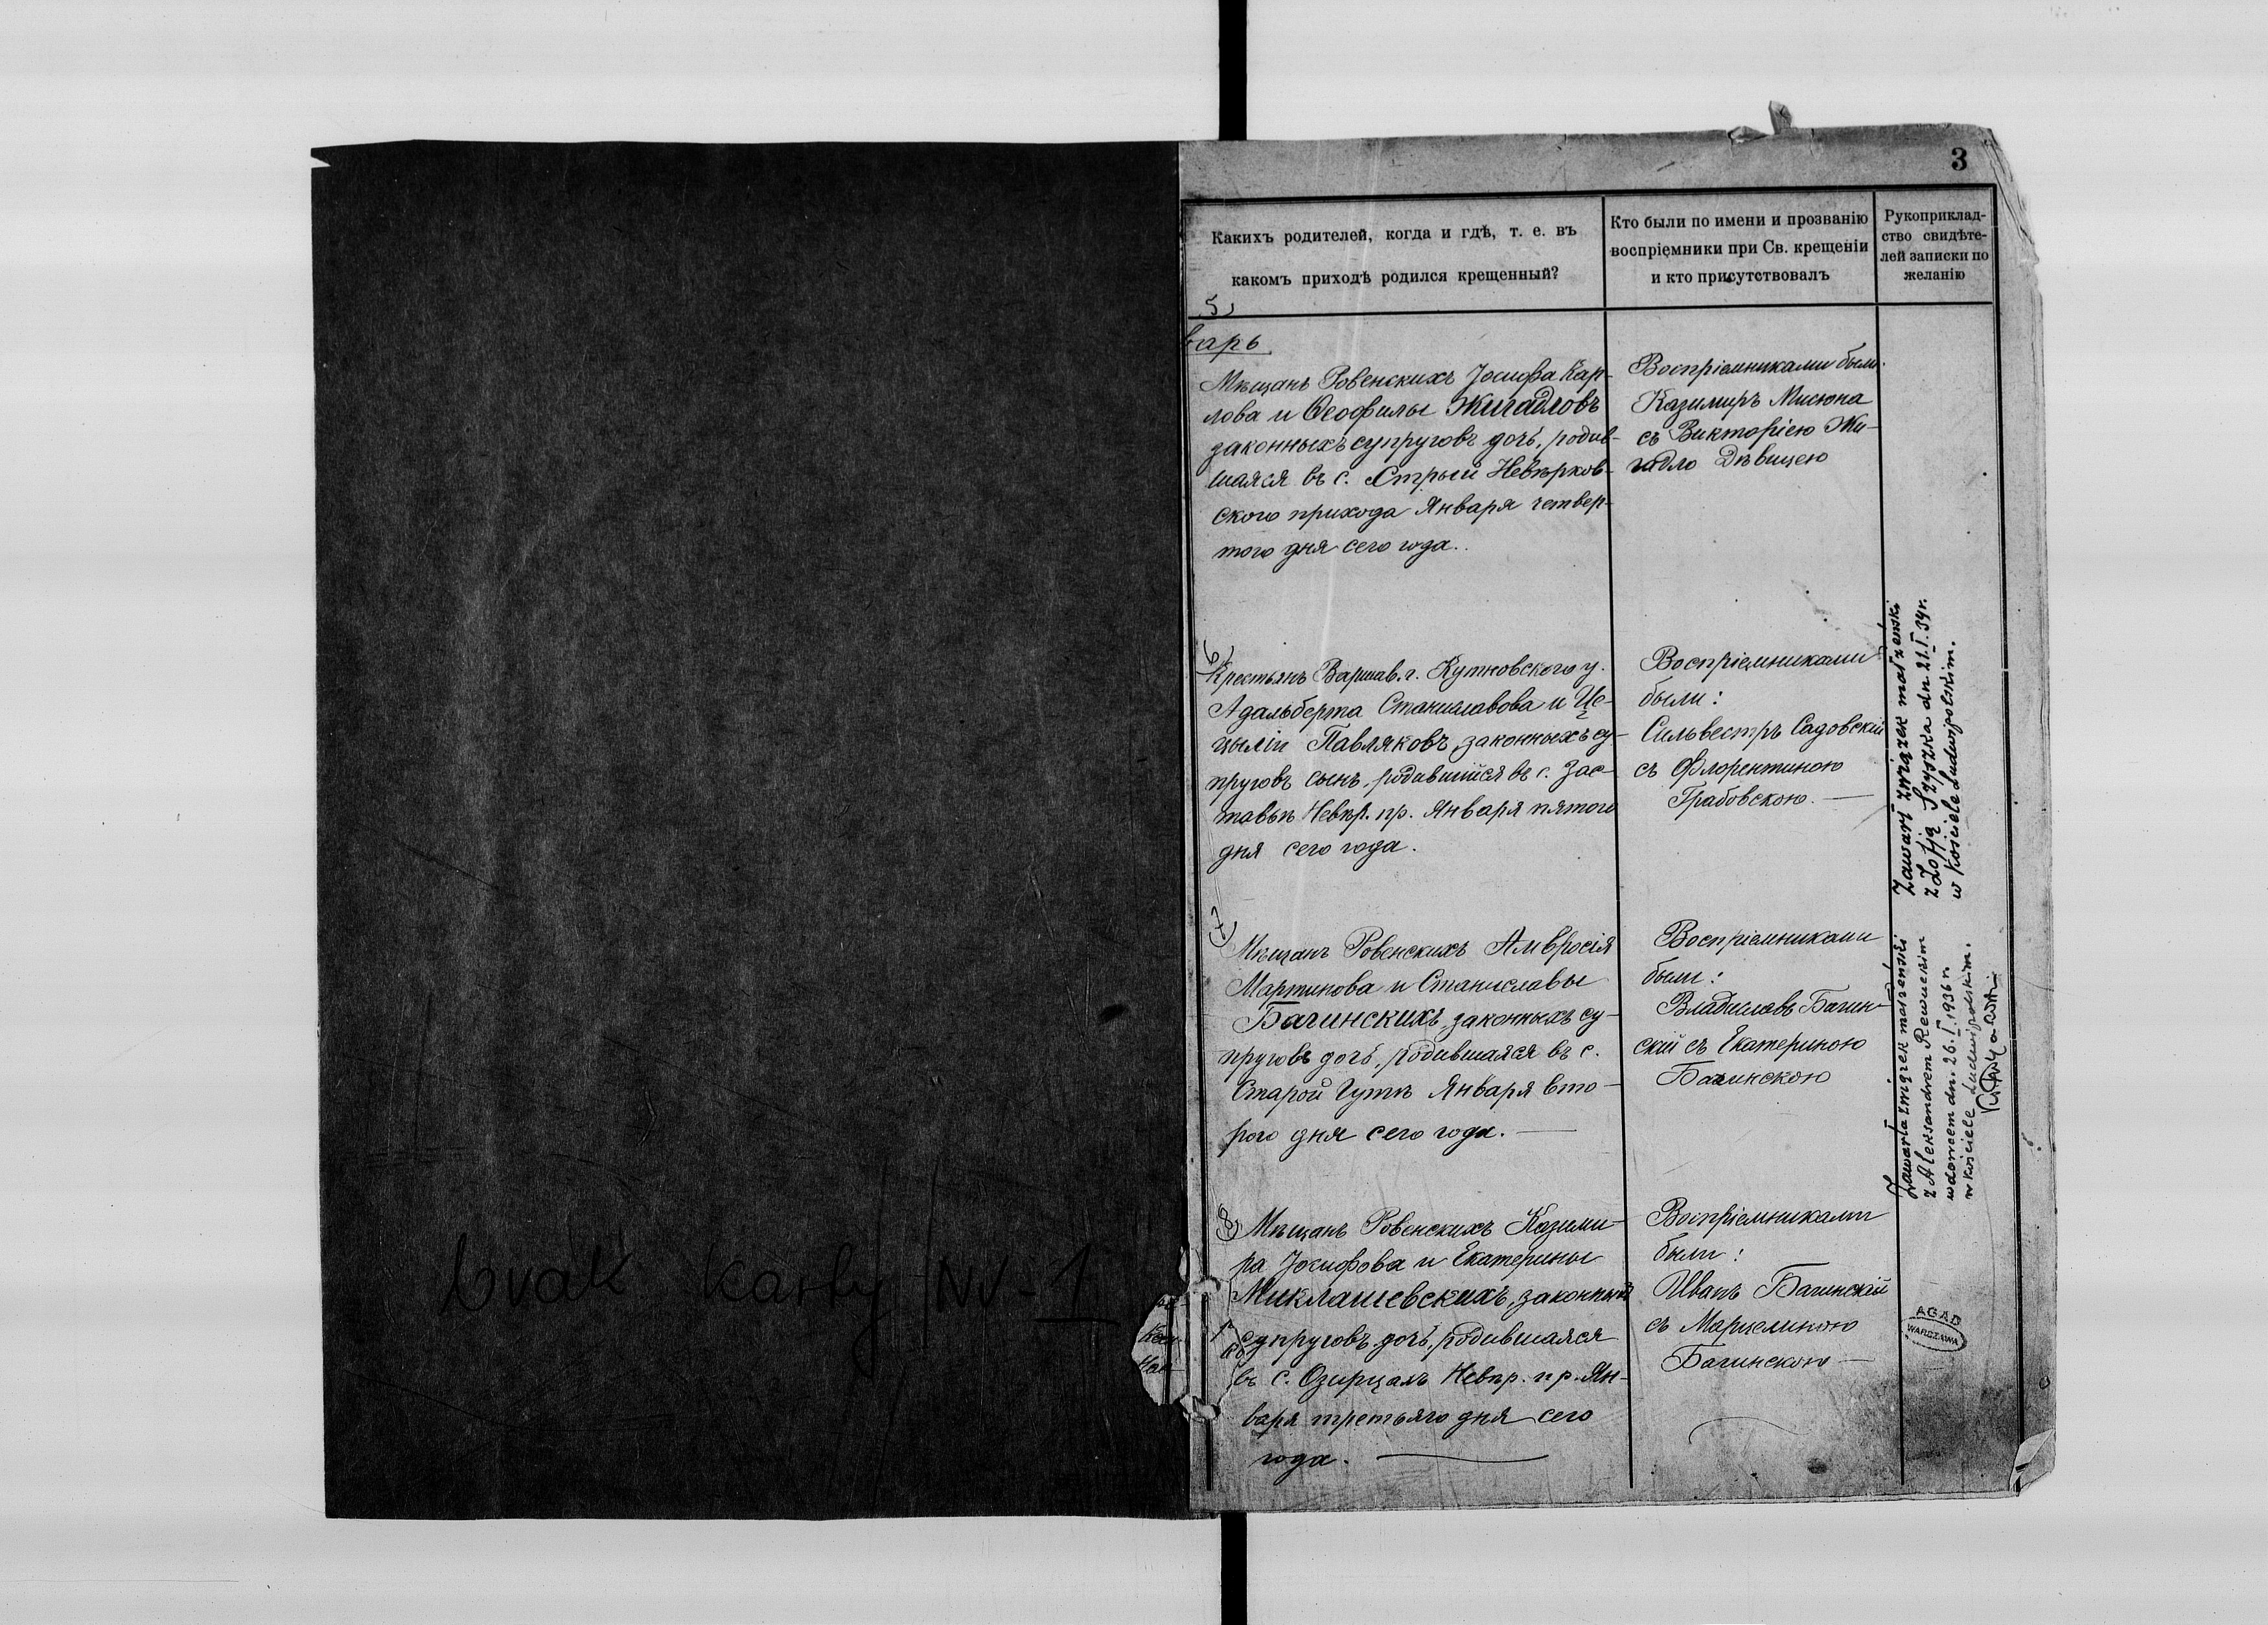 brak karty Nr 1
3
Какихъ родителей, когда и гдѣ, т. е. въ
какомъ приходѣ родился крещенный?
Кто были по имени и прозванію
воспріемники при Св. крещеніи
и кто присутствовалъ
Рукоприклад-
ство свидѣте-
лей записки по
желанію
5)
варь
Мѣщанъ Ровенскихъ Іосифа Кар-
лова и Ѳеофилы Жигадловъ
законныхъ супруговъ дочь, родив-
шаяся въ с. Стрый Невѣрков-
ского прихода Января четвер-
того дня сего года.
Воспріемниками были:
Казимиръ Мисюна
съ Викторіею Жи-
гадло Дѣвицею
6)
Крестьянъ Варшав. г. Кутновского у.
Адальберта Станиславова и Це-
циліи Павляковъ, законныхъ су-
пруговъ сынъ, родившійся въ с. Зас-
тавьѣ Невѣр. пр. Января пятого
дня сего года.
Воспріемниками
были:
Сильвестръ Садовскій
съ Флорентиною
Грабовскою.
Zawarł związek małżeński
z Zofją Szyszka dn. 21.I.39r.
w Kościele Ludwipolskim.
7)
Мѣщанъ Ровенскихъ Амвросія
Мартинова и Станиславы
Багинскихъ, законныхъ су-
пруговъ дочь, родившаяся въ с.
Старой Гутѣ Января вто-
рого дня сего года.
Воспріемниками
были:
Владиславъ Багин-
скій съ Екатериною
Багинскою
Zawarła związek małżeński
z Aleksandrem Rewuckim
wdowcem dn. 26.I.1936 r.
w kościele Ludwipolskim.
8)
Мѣщанъ Ровенскихъ Казими-
ра Іосифова и Екатерины
Миклашевскихъ, законныхъ
супруговъ дочь, родившаяся
въ с. Озирцахъ Невѣр. пр. Ян-
варя третьяго дня сего
года.
Воспріемниками
были:
Иванъ Багинскій
съ Марцелиною
Багинскою
AGAD
WARSZAWA